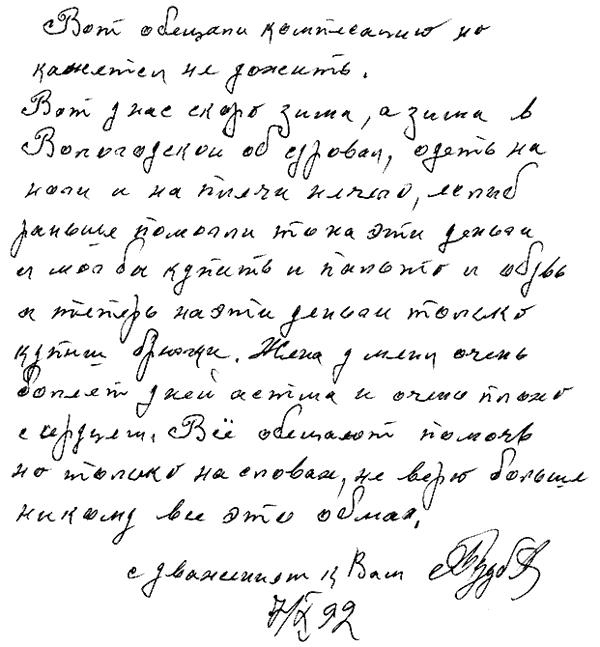 Вот обещали компесацию но
кажется не дожить.
Вот у нас скоро зима, а зима в
Вологодской об суровая, одеть на
ноги и на плечи нечего, еслиб
раньше помогли то на эти деньги
я мог бы купить и пальто и обувь
а теперь на эти деньги только
купиш брюки. Жена у меня очень
болеет у ней астма и очень плохо
с сердцем. Всё обещают помочь
но только на словах, не верю больше
никому все это обман.
с уважением к Вам
7/IX 92